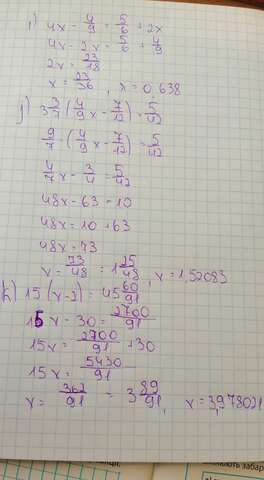 i) 4x - 4/9 = 5/6 = 2x
4x - 2x = 5/6 = 4/9
2x = 23/18
x = 23/36, x = 0,638
j) 3 3/7 (4/9 x - 7/12) = 5/42
9/7 · (4/9 x - 7/12) = 5/42
4/7 x - 3/4 = 5/42
48x - 63 = 10
48x = 10 + 63
48x = 73
x = 73/48 = 1 25/48, x = 1,52083
k) 15 (x - 2) = 45 60/91
15x - 30 = 2700/91
15x = 2700/91 + 30
15x = 5430/91
x = 362/91 = 3 89/91, x = 3,978021